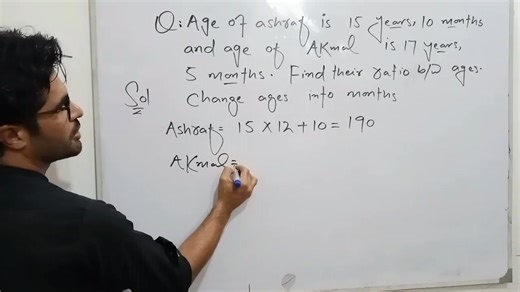 Q: Age of ashraf is 15 years, 10 months
and age of AKmal is 17 years,
5 months. Find their ratio b/w ages.
Sol
Change ages into months
Ashraf = 15 × 12 + 10 = 190
AKmal =